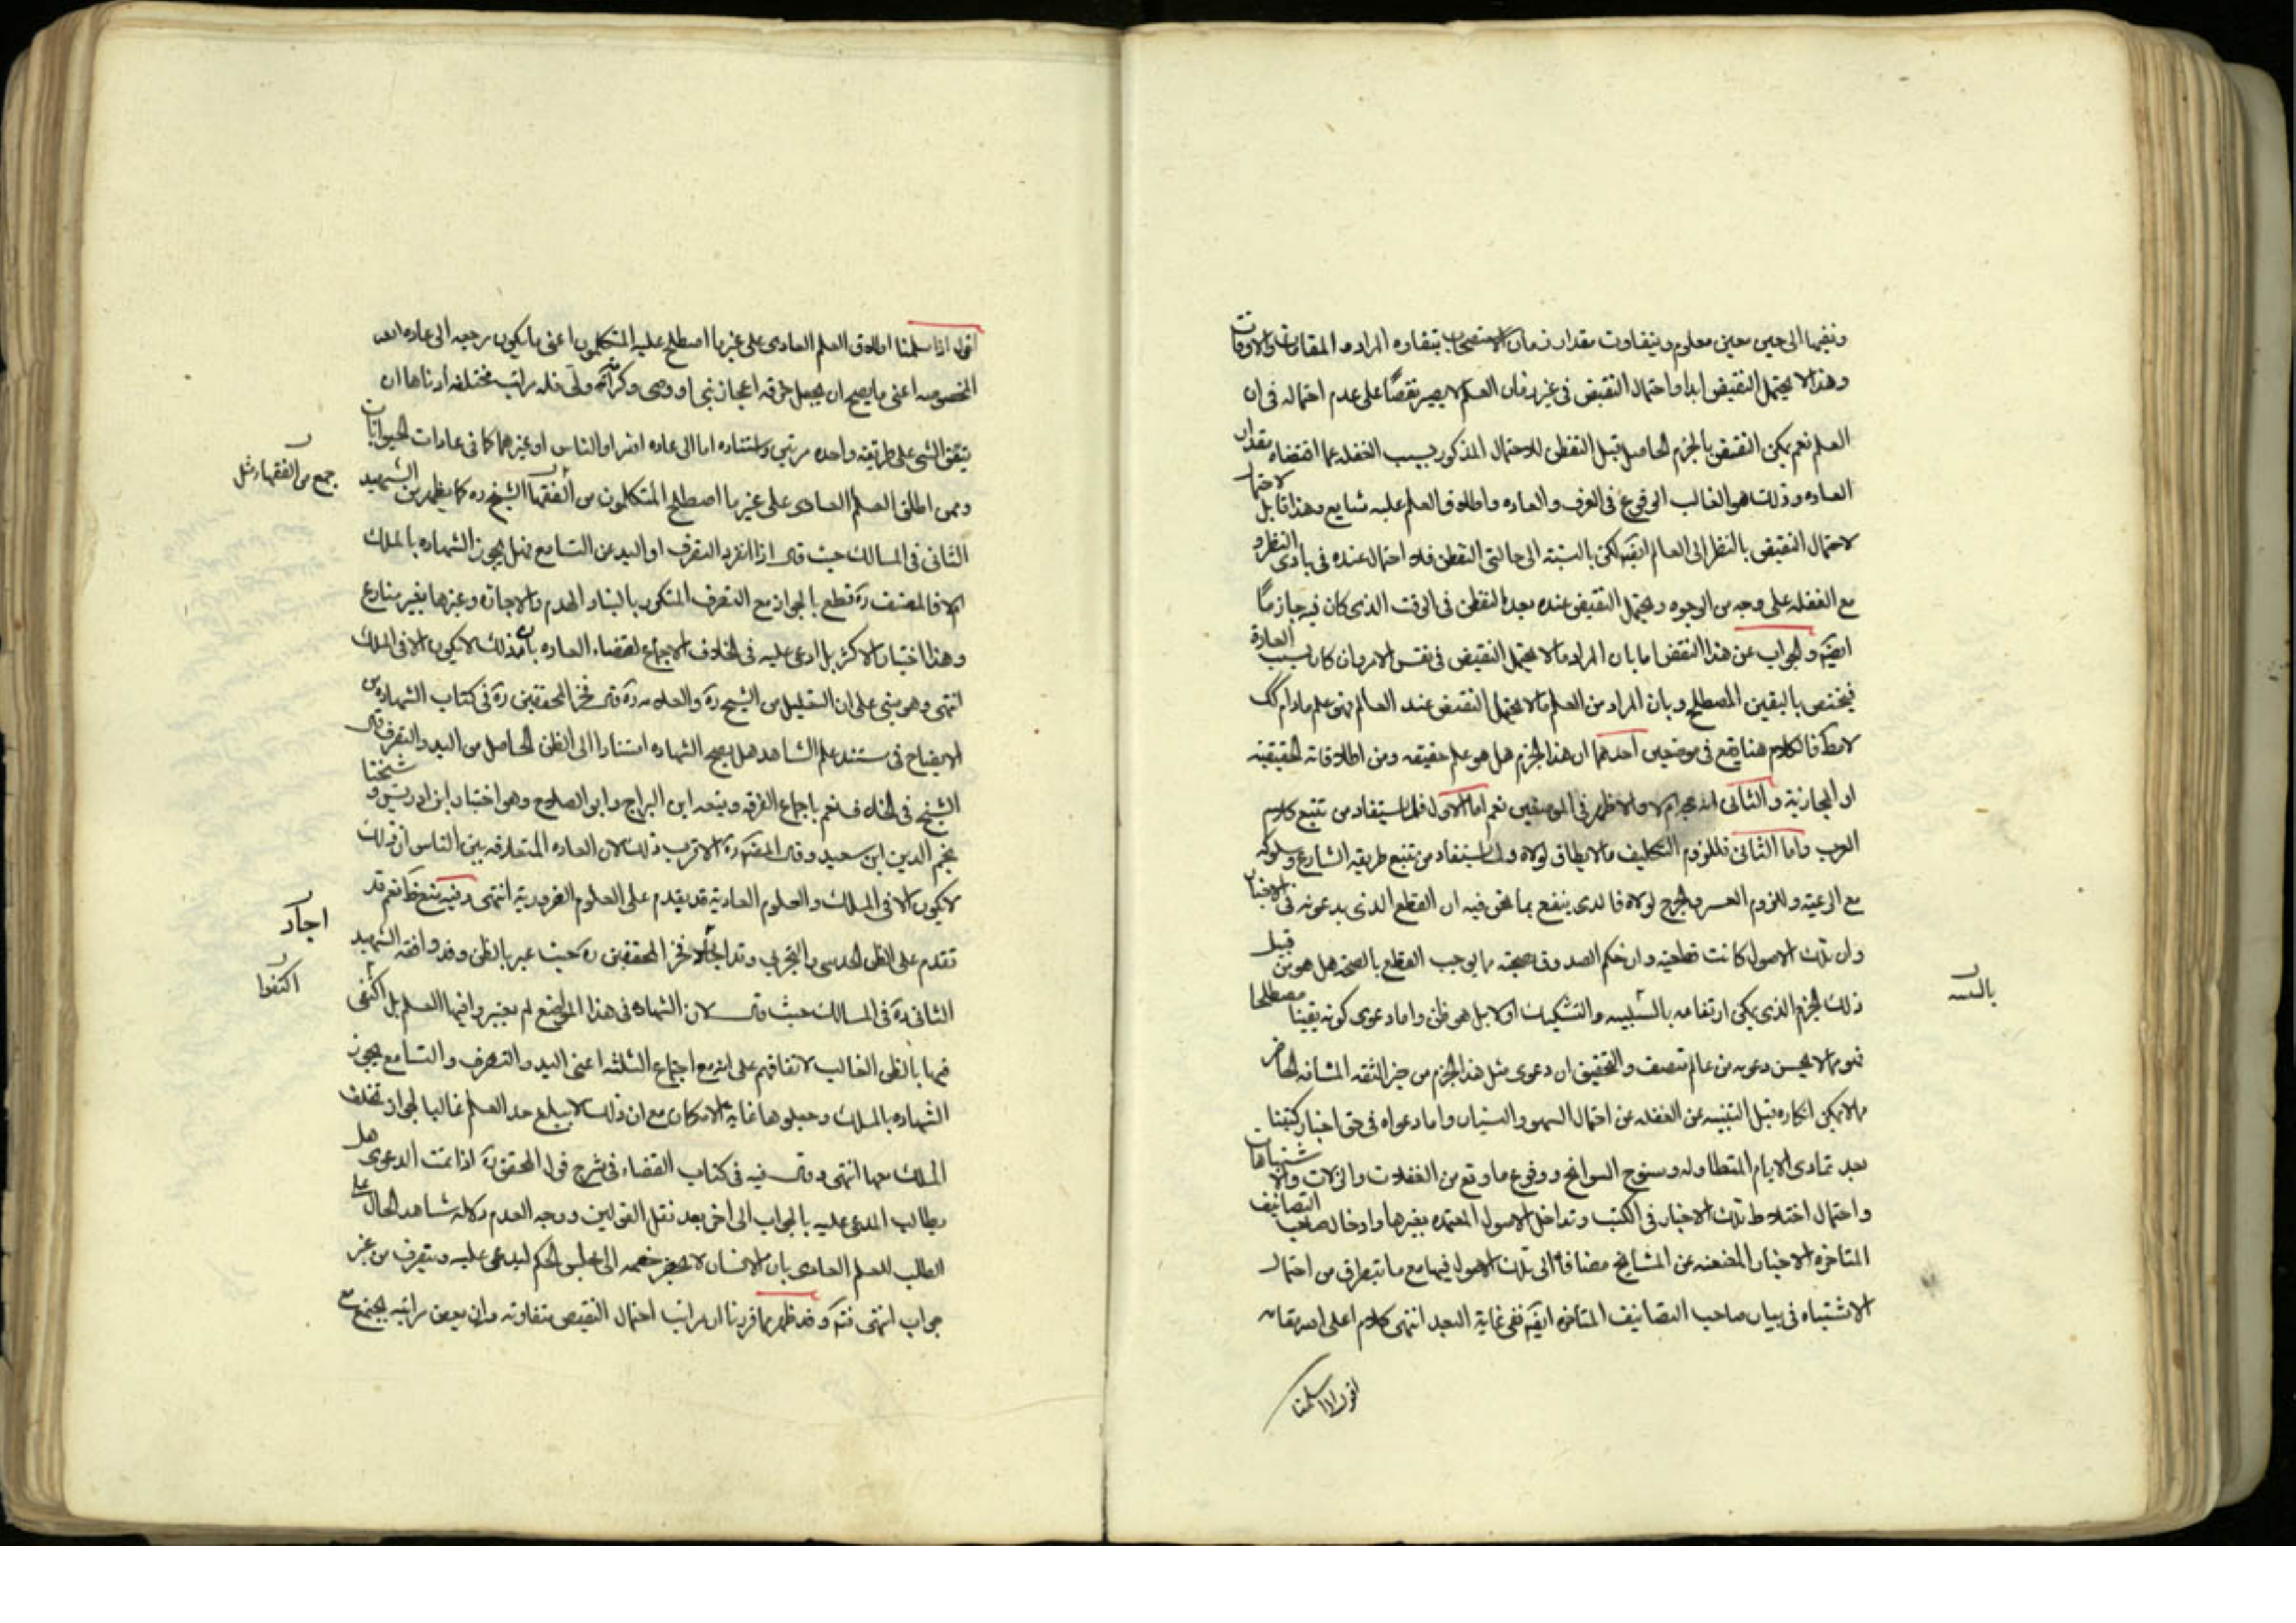 ونفيها الى حين معين معلوم ويتفاوت مقدار زمان الاستصحاب بتفاوت المراد والمقامات والاوقات
وهذا لا يحتمل النقيض ابدا واحتمال النقيض في غير زمان العلم لا يصير نقضا على عدم احتماله في ان
العلم نعم يمكن النقيض بالجزم الحاصل قبل التفطن للاحتمال المذكور بسبب الغفلة عما اقتضاه مقدار
العاده وذلك هو الغالب الوقوع في العرف والعاده واطلاق العلم عليه شايع وهذا قابل
لاحتمال النقيض بالنظر الى العالم ايضا لكن بالنسبة الى حالتي التفطن فلا احتمال عنده في بادى النظر و
مع الغفله على وجه من الوجوه ويحتمل النقيض عنده بعد التفطن في الوقت الذى كان فيه جازما
ايضا والجواب عن هذا النقض اما بان المراد ما لا يحتمل النقيض في نفس الامر وان كان بسبب العادة
فيختص باليقين المصطلح وبان المراد من العلم ما لا يحتمل النقيض عند العالم فهو علم مادام كك
لا مط فالكلام هنا يقع في موضعين احدهما ان هذا الجزم هل هو علم حقيقه ومن اطلاقاته الحقيقيه
او المجازية والثانى انه حجه ام لا والاظهر في الموضعين نعم اما الاول فلما يستفاد من تتبع كلام
العرب واما الثانى فللزوم التكليف ما لا يطاق لولاه ولما يستفاد من تتبع طريقه الشارع وسلوكه
مع الرعية وللزوم العسر والحرج لولاه فالذى ينفع بما نحن فيه ان القطع الذى يدعونه في الاخبار
وان تلك الاصول كانت قطعيه وان حكم الصدوق بصحته مما يوجب القطع بالصحه هل هو من قبيل
ذلك الجزم الذى يمكن ارتفاعه بالتنبيه والتشكيك او لا بل هو ظن واما دعوى كونه يقينا مصطلحا
فهو مما لا يحسن دعويه من عالم منصف والتحقيق ان دعوى مثل هذا الجزم من خبر الثقه المشافه الحاضر
مما لا يمكن انكاره قبل التنبيه عن الغفله عن احتمال السهو والنسيان واما دعواه في حق اخبار كتبنا
بعد تمادى الايام المتطاوله وسنوح السوانح ووقوع ما وقع من الغفلات والزلات والاشتباهات
واحتمال اختلاط تلك الاخبار في الكتب وتداخل الاصول المعتمده بغيرها وادخال صاحب التصانيف
المتاخره الاخبار المعنعنه عن المشايخ مضافا الى تلك الاصول فيها مع ما يتطرق من احتمال
الاشتباه في بيان صاحب التصانيف المتاخره ايضا ففي غاية البعد انتهى كلام اعلى الله مقامه
اقول اذا سلمنا
بالتنبيه
اقول اذا سلمنا اطلاق العلم العادى على غير ما اصطلح عليه المتكلمون اعنى ما يكون مرجعه الى عاده الله
المخصوصه اعنى ما يصح ان يجعل خرقه اعجاز نبى او وصى وكرامة ولى فله مراتب مختلفه ادناها ان
يتفق الشى على طريقه واحده مرتين واستناده اما الى عاده الله او الناس او غيرهما كما في عادات الحيوانات
وممن اطلق العلم العادى على غير ما اصطلح المتكلمون من الفقهاء الشيخ ره كما يظهر من الشهيد
جمع من الفقهاء مثل
الثانى في المسالك حيث قال اذا انفرد التصرف او اليد عن التسامع فهل يجوز الشهاده بالملك
ام لا فالمصنف ره قطع بالجواز مع التصرف المتكرر بالبناء والهدم والاجاره وغيرها بغير منازع
وهذا اختيار الاكثر بل ادعى عليه في الخلاف الاجماع لقضاء العاده بان ذلك لا يكون الا في الملك
انتهى وهو مبنى على ان التعليل من الشيخ ره والعلامه ره قال فخر المحققين ره في كتاب الشهاده من
الايضاح في مستند علم الشاهد هل يصح الشهاده استنادا الى الظن الحاصل من اليد والتصرف قال
الشيخ في الخلاف نعم باجماع الفرقه وتبعه ابن البراج وابو الصلاح وهو اختيار ابن ادريس وشيخنا
نجم الدين ابن سعيد وقال المصنف ره الاقرب ذلك لان العاده المتعارفه بين الناس ان ذلك
لا يكون الا في الملك والعلوم العادية قد يقدم على العلوم الضرورية انتهى وفيه منع ظ نعم قد
تقدم على الظن الحدسى والتجربى وقد اجاد فخر المحققين ره حيث عبر بالظن وقد وافقه الشهيد
اجاد
الثانى ره في المسالك حيث قال لان الشهاده في هذا الموضع لم يعتبروا فيها العلم بل اكتفى
اكتفوا
فيها بالظن الغالب لاتفاقهم على انه مع اجتماع الثلثه اعنى اليد والتصرف والتسامع يجوز
الشهاده بالملك وجعلوها غاية الامكان مع ان ذلك لا يبلغ حد العلم غالبا لجواز تخلف
الملك معها انتهى وقال فيه في كتاب القضاء في شرح قول المحقق ره اذا تمت الدعوى هل
يطالب المدعى عليه بالجواب الى اخره بعد نقل القولين ووجه العدم دلاله شاهد الحال على
الطلب للعلم العادى بان الانسان لا يحضر خصمه الى مجلس الحكم ليدعى عليه وينصرف من غير
جواب انتهى فتدبر وقد ظهر مما قررنا ان مراتب احتمال النقيض متفاوته وان بعض مراتبه يجتمع مع